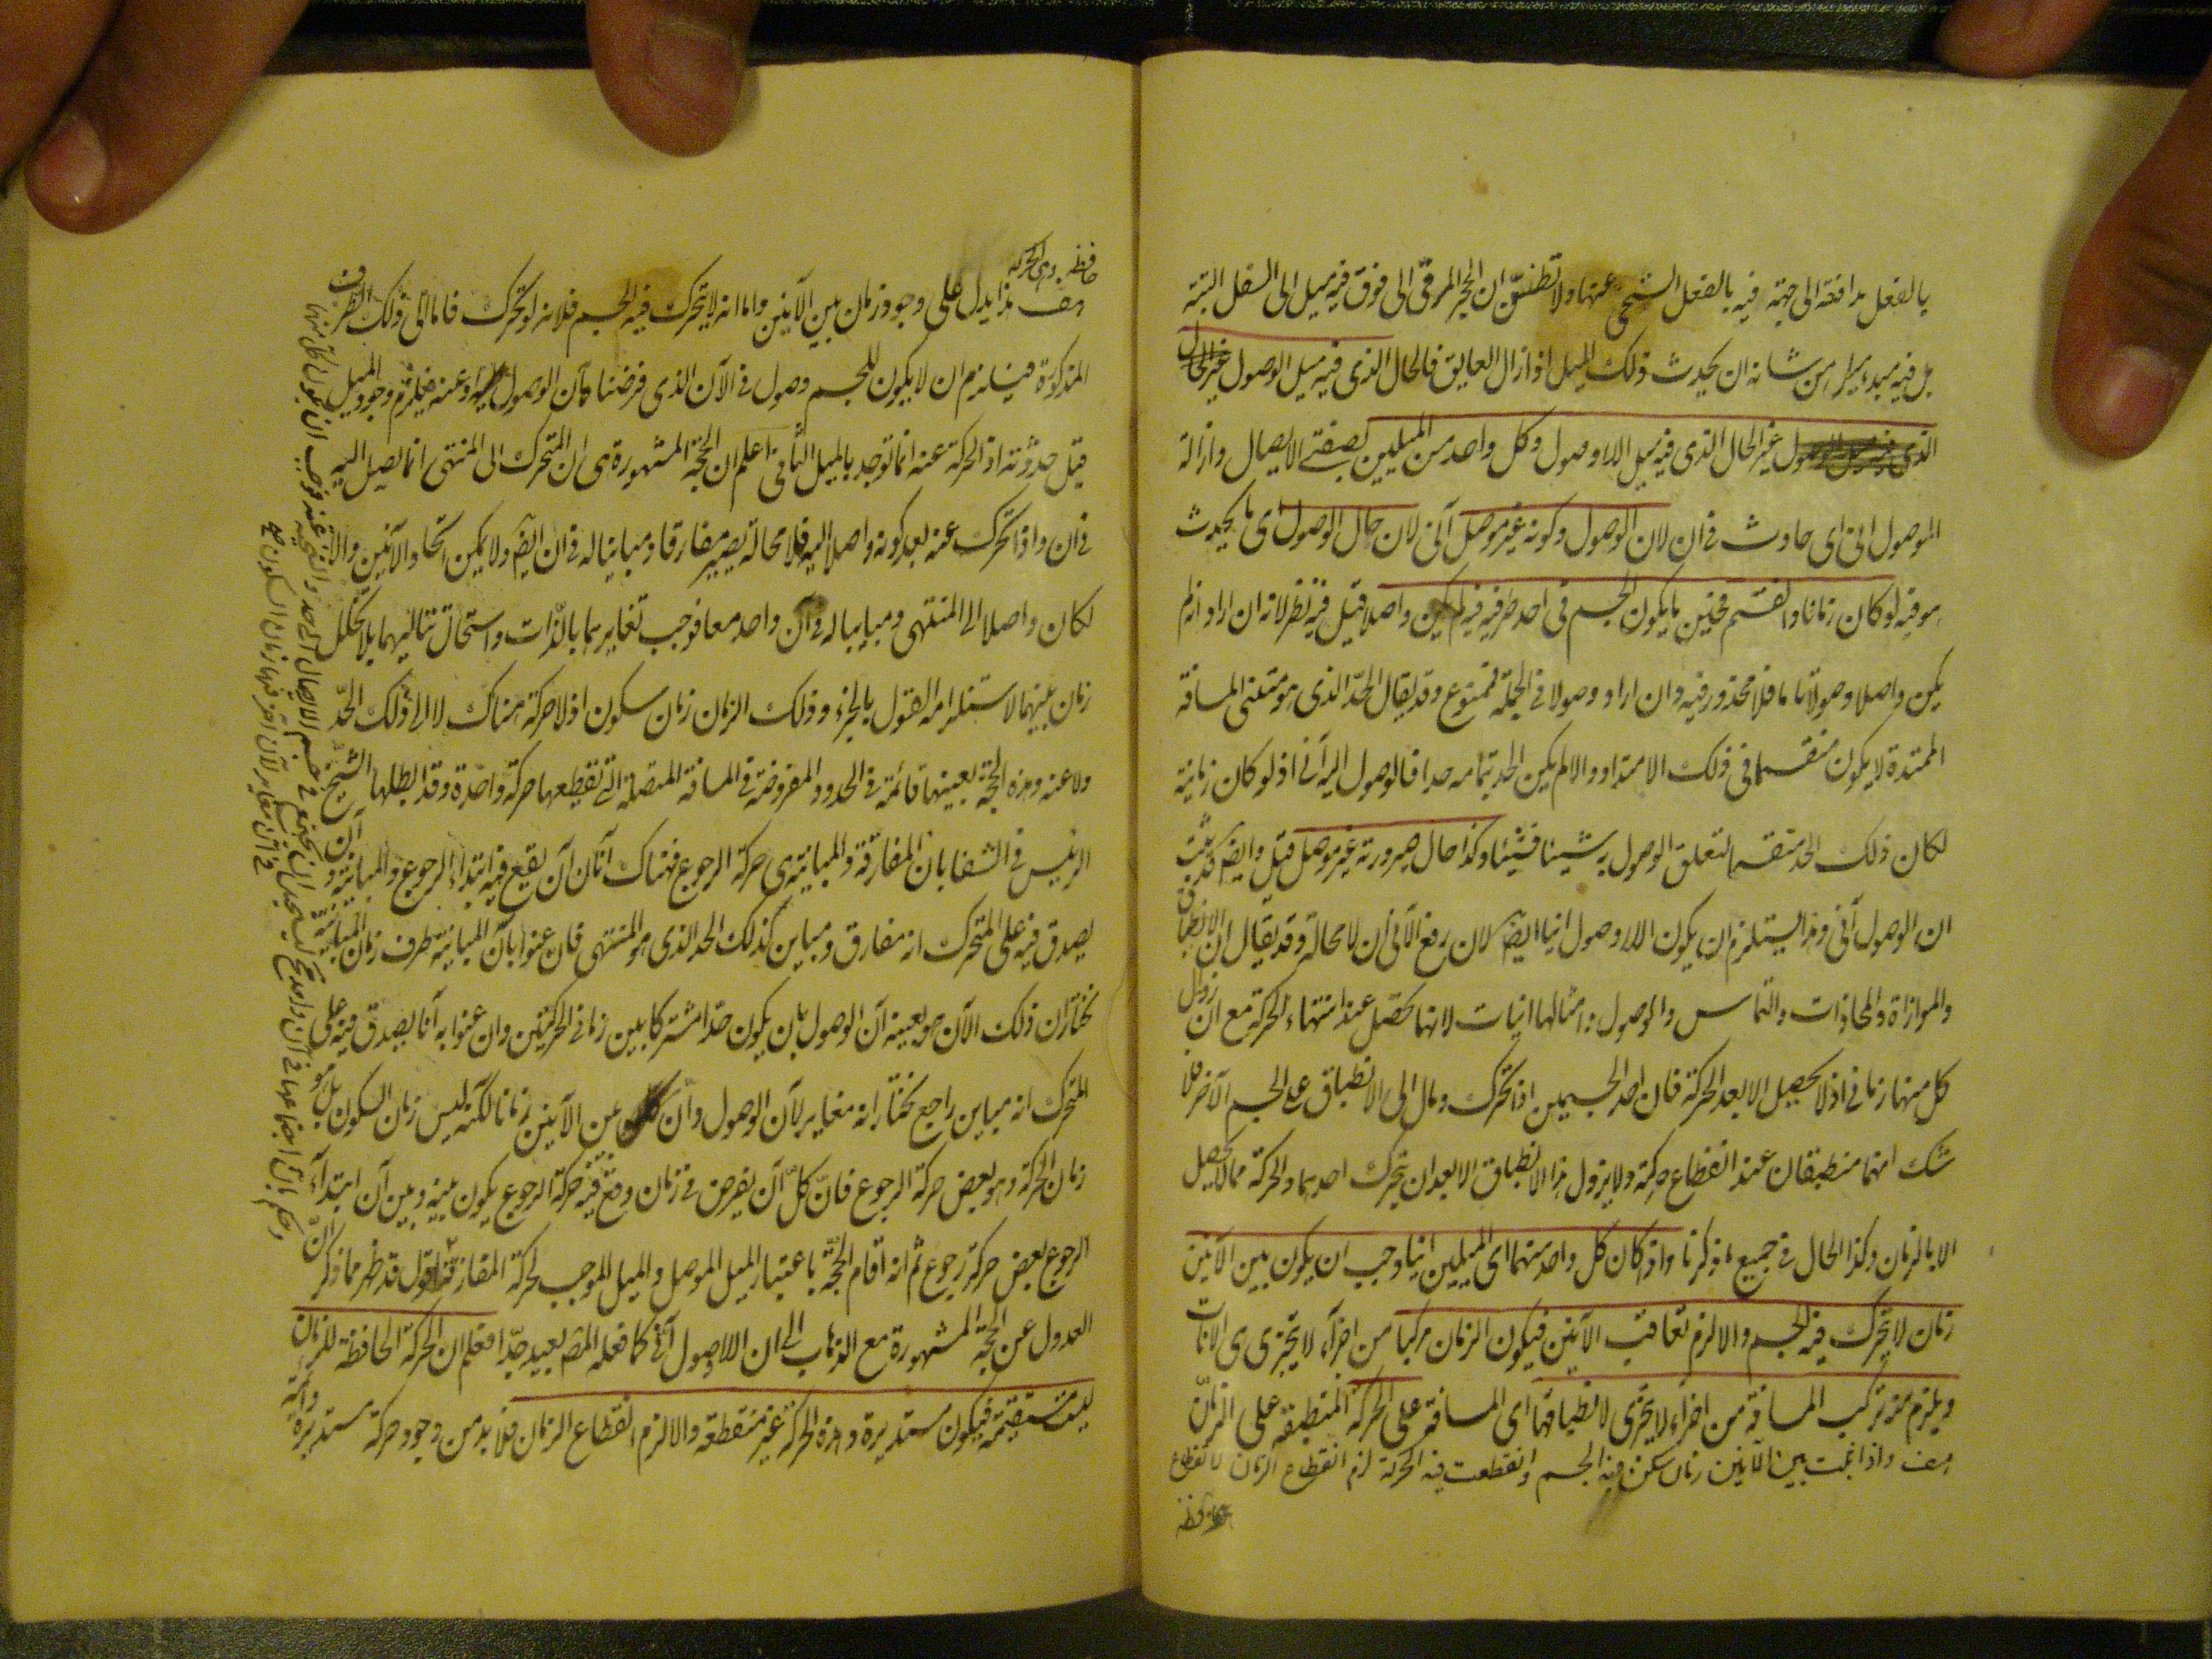 بالفعل مدافعة الى جهة فيه بالفعل التنحى عنها ولا تظنن ان الحجر المرمى الى فوق فيه ميل الى السفل البتة
بل فيه مبدء ميل من شانه ان يحدث ذلك الميل اذا زال العايق فالحال الذى فيه ميل الوصول غير الحال
الذى فيه ميل الوصول غير الحال الذى فيه ميل اللاوصول وكل واحد من الميلين بصفتى الايصال وازالة
الموصول انى اى حادث فى ان لان الوصول وكونه غير موصل آنى لان حال الوصول اى ما يحدث
هو فيه لو كان زمانا وانقسم فحين ما يكون الجسم فى احد طرفيه فيه لم يكن واصلا قيل فيه نظر لانه ان اراد انه لم
يكن واصلا وصولا تاما فلا محذور فيه وان اراد وصولا فى الجملة فممنوع وقد يقال الحد الذى هو منتهى المسافة
الممتدة لا يكون منقسما فى ذلك الامتداد والا لم يكن الحد بتمامه حدا فالوصول اليه آنى اذ لو كان زمانية
لكان ذلك الحد منقسما لتعلق الوصول به شيئا فشيئا وكذا حال صيرورته غير موصل قيل وايضا قد ثبت
ان الوصول آنى وهذا يستلزم ان يكون اللاوصول انيا ايضا لان رفع الآنى آن لا محالة وقد يقال ان الانطباق
والموازاة والمحاذات والتماس والوصول وامثالها انيات لانها تحصل عند انتهاء الحركة مع ان زوال
كل منها زمانى اذ لا يحصل الا بعد الحركة فان احد الجسمين اذا تحرك ومال الى الانطباق على الجسم الآخر فلا
شك انهما منطبقان عند انقطاع حركته ولا يزول هذا الانطباق الا بعد ان يتحرك احدهما والحركة مما لا يحصل
الا بالزمان وكذا الحال فى جميع ما ذكرنا واذ كان كل واحد منهما اى الميلين انيا وجب ان يكون بين الآنين
زمان لا يتحرك فيه الجسم والا لزم تعاقب الآنين فيكون الزمان مركبا من اجزآء لا يتجزى هى الانات
ويلزم منه تركب المسافة من اجزاء لا يتجزى لانطباقها اى المسافة على الحركة المنطبقة على الزمان
هف واذا ثبت بين الآنين زمان سكن فيه الجسم وانقطعت فيه الحركة لزم انقطاع الزمان لانقطاع
حافظه
حافظه وهى الحركة
هف هذا يدل على وجود زمان بين الآنين واما انه لا يتحرك فيه الجسم فلانه لو تحرك فاما الى ذلك الطرف
المذكورة فيلزم ان لا يكون للجسم وصول فى الآن الذى فرضناه آن الوصول اليه او عنه فيلزم وجود الميل
قبل حدوثه اذ الحركة عنه انما توجد بالميل الثانى اعلم ان الحجة المشهورة هى ان المتحرك الى المنتهى انما يصل اليه
فى ان واذا تحرك عنه بعد كونه واصلا اليه فلا محالة يصير مفارقا ومباينا له فى ان ايضا ولا يمكن اتحاد الآنين والا
لكان واصلا الى المنتهى ومباينا له فى ان واحد معا فوجب تغايرهما بالذات واستحال تتاليهما بلا تخلل
زمان بينهما لاستلزامه القول بالجزء وذلك الزمان زمان سكون اذ لا حركة هناك لا الى ذلك الحد
ولا عنه وهذه الحجة بعينها قائمة فى الحدود المفروضة فى المسافة المتصلة التى تقطعها حركة واحدة وقد ابطلها الشيخ
الرئيس فى الشفا بان المفارقة والمباينة هى حركة الرجوع فهناك آنان آن يقع فيه ابتداء الرجوع والمباينة وآن
يصدق فيه على المتحرك انه مفارق ومباين كذلك الحد الذى هو المنتهى فان عنوا بآن المباينة طرف زمان المباينة
نختار ان ذلك الآن هو بعينه آن الوصول بان يكون حدا مشتركا بين زمانى الحركتين وان عنوا به آنا يصدق فيه على
المتحرك انه مباين راجع نختار انه مغاير لآن الوصول وان بين الآنين زمانا لكنه ليس زمان السكون بل هو
زمان الحركة وهو بعض حركة الرجوع فان كل آن يفرض فى زمان وقع فيه حركة الرجوع يكون بينه وبين آن ابتدآء
الرجوع بعض حركة رجوع ثم انه اقام الحجة باعتبار الميل الموصل والميل الموجب لحركة المفارقة اقول قد ظهر مما ذكر ان
العدول عن الحجة المشهورة مع الذهاب الى ان اللاوصول آنى كما فعله المص بعيد جدا فعلم ان الحركة الحافظة للزمان
ليست مستقيمة فيكون مستديرة وهذه الحركة غير منقطعة والا لزم انقطاع الزمان فلا بد من وجود حركة مستديرة دائمة